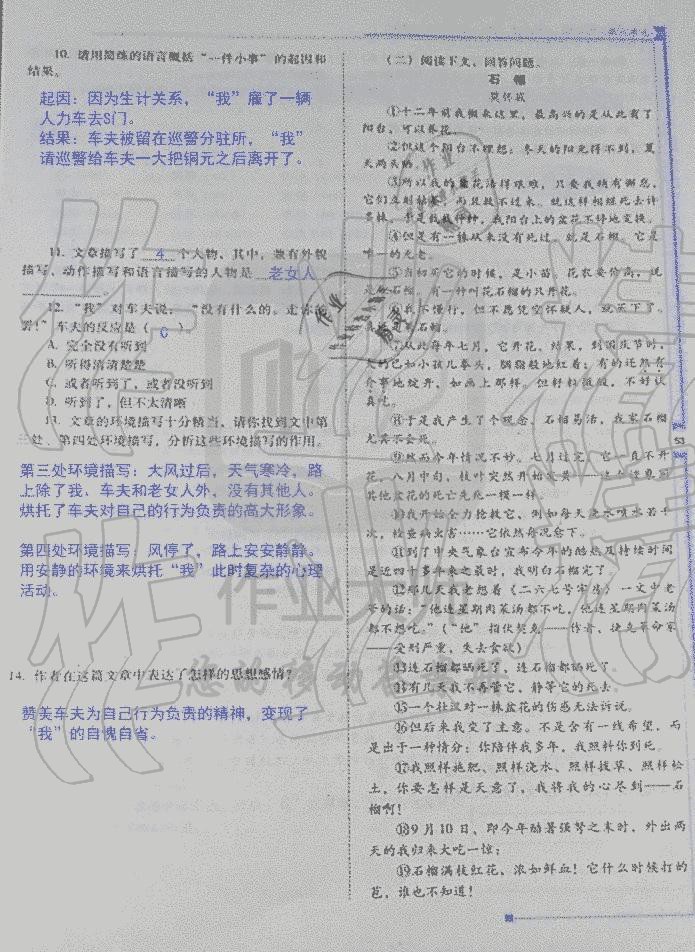 10. 请用简练的语言概括“一件小事”的起因和
结果。
起因：因为生计关系，“我”雇了一辆
人力车去S门。
结果：车夫被留在巡警分驻所，“我”
请巡警给车夫一大把铜元之后离开了。
11. 文章描写了 4 个人物，其中，兼有外貌
描写、动作描写和语言描写的人物是 老女人
12. “我”对车夫说：“没有什么的。走你的
罢！”车夫的反应是（ C ）
A. 完全没有听到
B. 听得清清楚楚
C. 或者听到了，或者没听到
D. 听到了，但不太清晰
13. 文章的环境描写十分精当，请你找到文中第
三处、第四处环境描写，分析这些环境描写的作用。
第三处环境描写：大风过后，天气寒冷，路
上除了我、车夫和老女人外，没有其他人。
烘托了车夫对自己的行为负责的高大形象。
第四处环境描写：风停了，路上安安静静。
用安静的环境来烘托“我”此时复杂的心理
活动。
14. 作者在这篇文章中表达了怎样的思想感情？
赞美车夫为自己行为负责的精神，变现了
“我”的自愧自省。
（二）阅读下文，回答问题。
石 榴
莫怀戚
①十二年前我搬来这里，最高兴的是从此有了
阳台，可以养花。
②但这个阳台不理想：冬天的阳光得不到，夏
天两头晒。
③所以我的盆花活得艰难，只要我稍有懈怠，
它们立刻枯萎，而且救不过来。就这样相继死去许
多株，于是栽栽种种，我阳台上的盆花不住地变换。
④但是有一株从来没有死过。就是石榴。它是
唯一的元老。
⑤当初买它的时候，是小苗。花农要价高，说
是石榴。有一种叫花石榴的只开花。
⑥我不懂行，但不愿凭空怀疑人，就买下了。
真是石榴。
⑦从此每年七月，它开花，结果，到国庆节时，
大的已如小孩儿拳头，胭脂般地红着；有的还煞有
介事地绽开，如画上那样。但籽料微微，不好认
真吃。
⑧于是我产生了个观念，石榴易活，我家石榴
尤其不会死。
⑨然而今年情况不妙。七月过完，它一直不开
花，八月中旬，枝叶突然开始发黄——这个姿态同
其他盆花的死亡先兆一模一样。
⑩我开始全力抢救它，例如每天浇水喷水若干
次，检查病虫害……它依然每况愈下。
⑪到了中央气象台宣布今年的酷热及持续时间
是近四十多年来之最时，我明白石榴完了。
⑫那几天我老想着《二六七号牢房》一文中老
爷的话：“他连星期肉菜汤都不吃，他连星期肉菜汤
都不想吃。”（“他”指伏契克——作者，捷克革命家
——受刑严重，失去食欲）
⑬连石榴都晒死了，连石榴都晒死了。
⑭有几天我不再管它，静等它的死去。
⑮一个壮汉对一株盆花的伤感无法诉说。
⑯但后来我变了主意。不是含有一线希望，而
是出于一种情分：你陪伴我多年，我照料你到死。
⑰我照样施肥、照样浇水、照样拔草、照样松
土，你要怎样是天意了，我将我的心尽到——石
榴啊！
⑱9月10日，即今年酷暑强弩之末时，外出两
天的我归来大吃一谅：
⑲石榴满枝红花，浓如鲜血！它什么时候打的
苞，谁也不知道！
53
作业
作业
作业大师
作业精灵